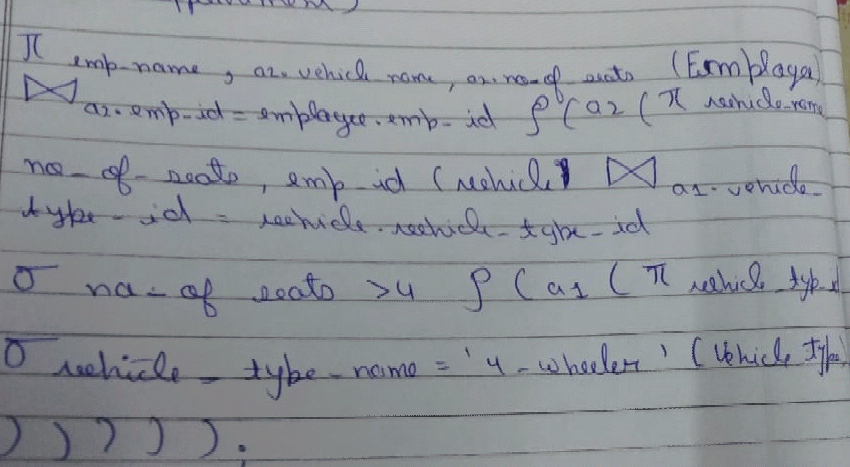 π emp-name, a2.vehicle name, a2.no-of seats (Employee)
⋈ a2.emp-id = employee.emp-id ρ (a2 (π vehicle-name
no-of-seats, emp-id (vehicle ⋈ a1.vehicle-
type-id = vehicle.vehicle-type-id
σ no-of seats >4 ρ (a1 (π vehicle_typ_d
σ vehicle-type-name = '4-wheeler' (Vehicle type)
) ) ) ) ) ;